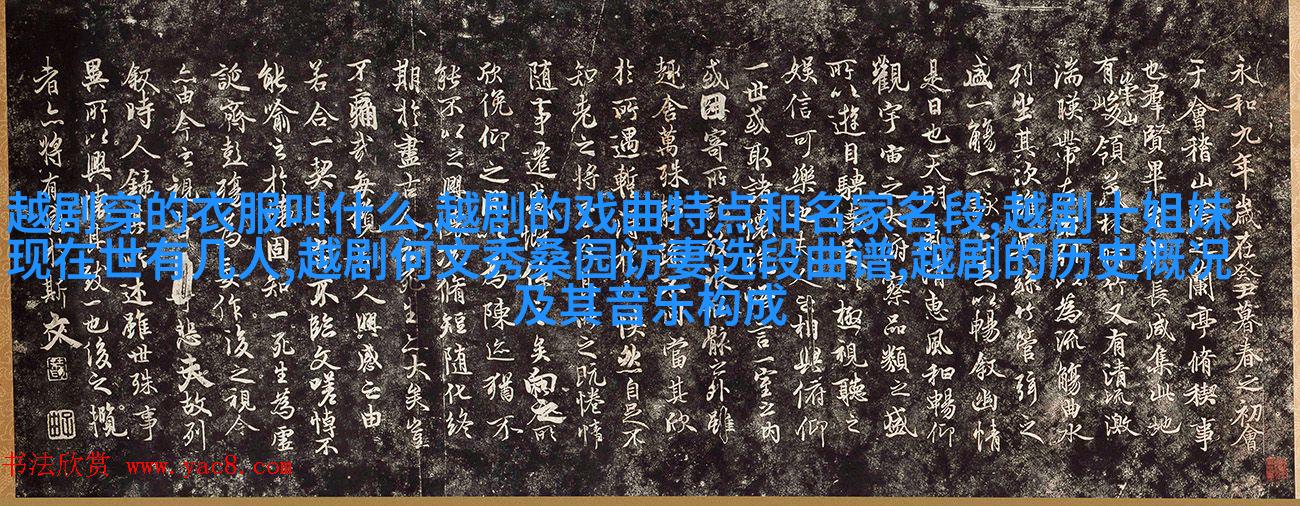 越剧穿的衣服叫什么,越剧的戏曲特点和名家名段,越剧十姐妹
现在世有几人,越剧何文秀桑园访妻选段曲谱,越剧的历史概况
及其音乐构成
永和九年歲在癸丑暮春之初會
于會稽山蘭亭脩稧事
也羣賢畢長咸集此地
有崇山峻領茂林竹又有清流激
湍暎帶左以為流觴曲水
列坐其次絲竹管弦之
盛一觴一詠之以暢敘幽情
是日也天朗清惠風和暢仰
觀宇宙之大俯察品類之盛
所以遊目騁極視聽之
娛信可樂也夫人相與俯仰
一世或取諸言一室之內
或因寄所骸之外雖
趣舍萬殊當其欣
於所遇暫快然自足不
知老之將之既惓情
隨事遷矣向之所
欣俛仰之為陳迹猶不
能不以之興脩短隨化終
期於盡古死生亦大矣豈
不痛哉每人興感之由
若合一契不臨文嗟悼不
能喻之於固知一死生為虛
誕齊彭殤為妄作後之視今
亦由今之視悲夫故列
敘時人錄述雖世殊事
異所以興致一也後之攬
者亦將有斯文
书法欣赏 www.yac8.com